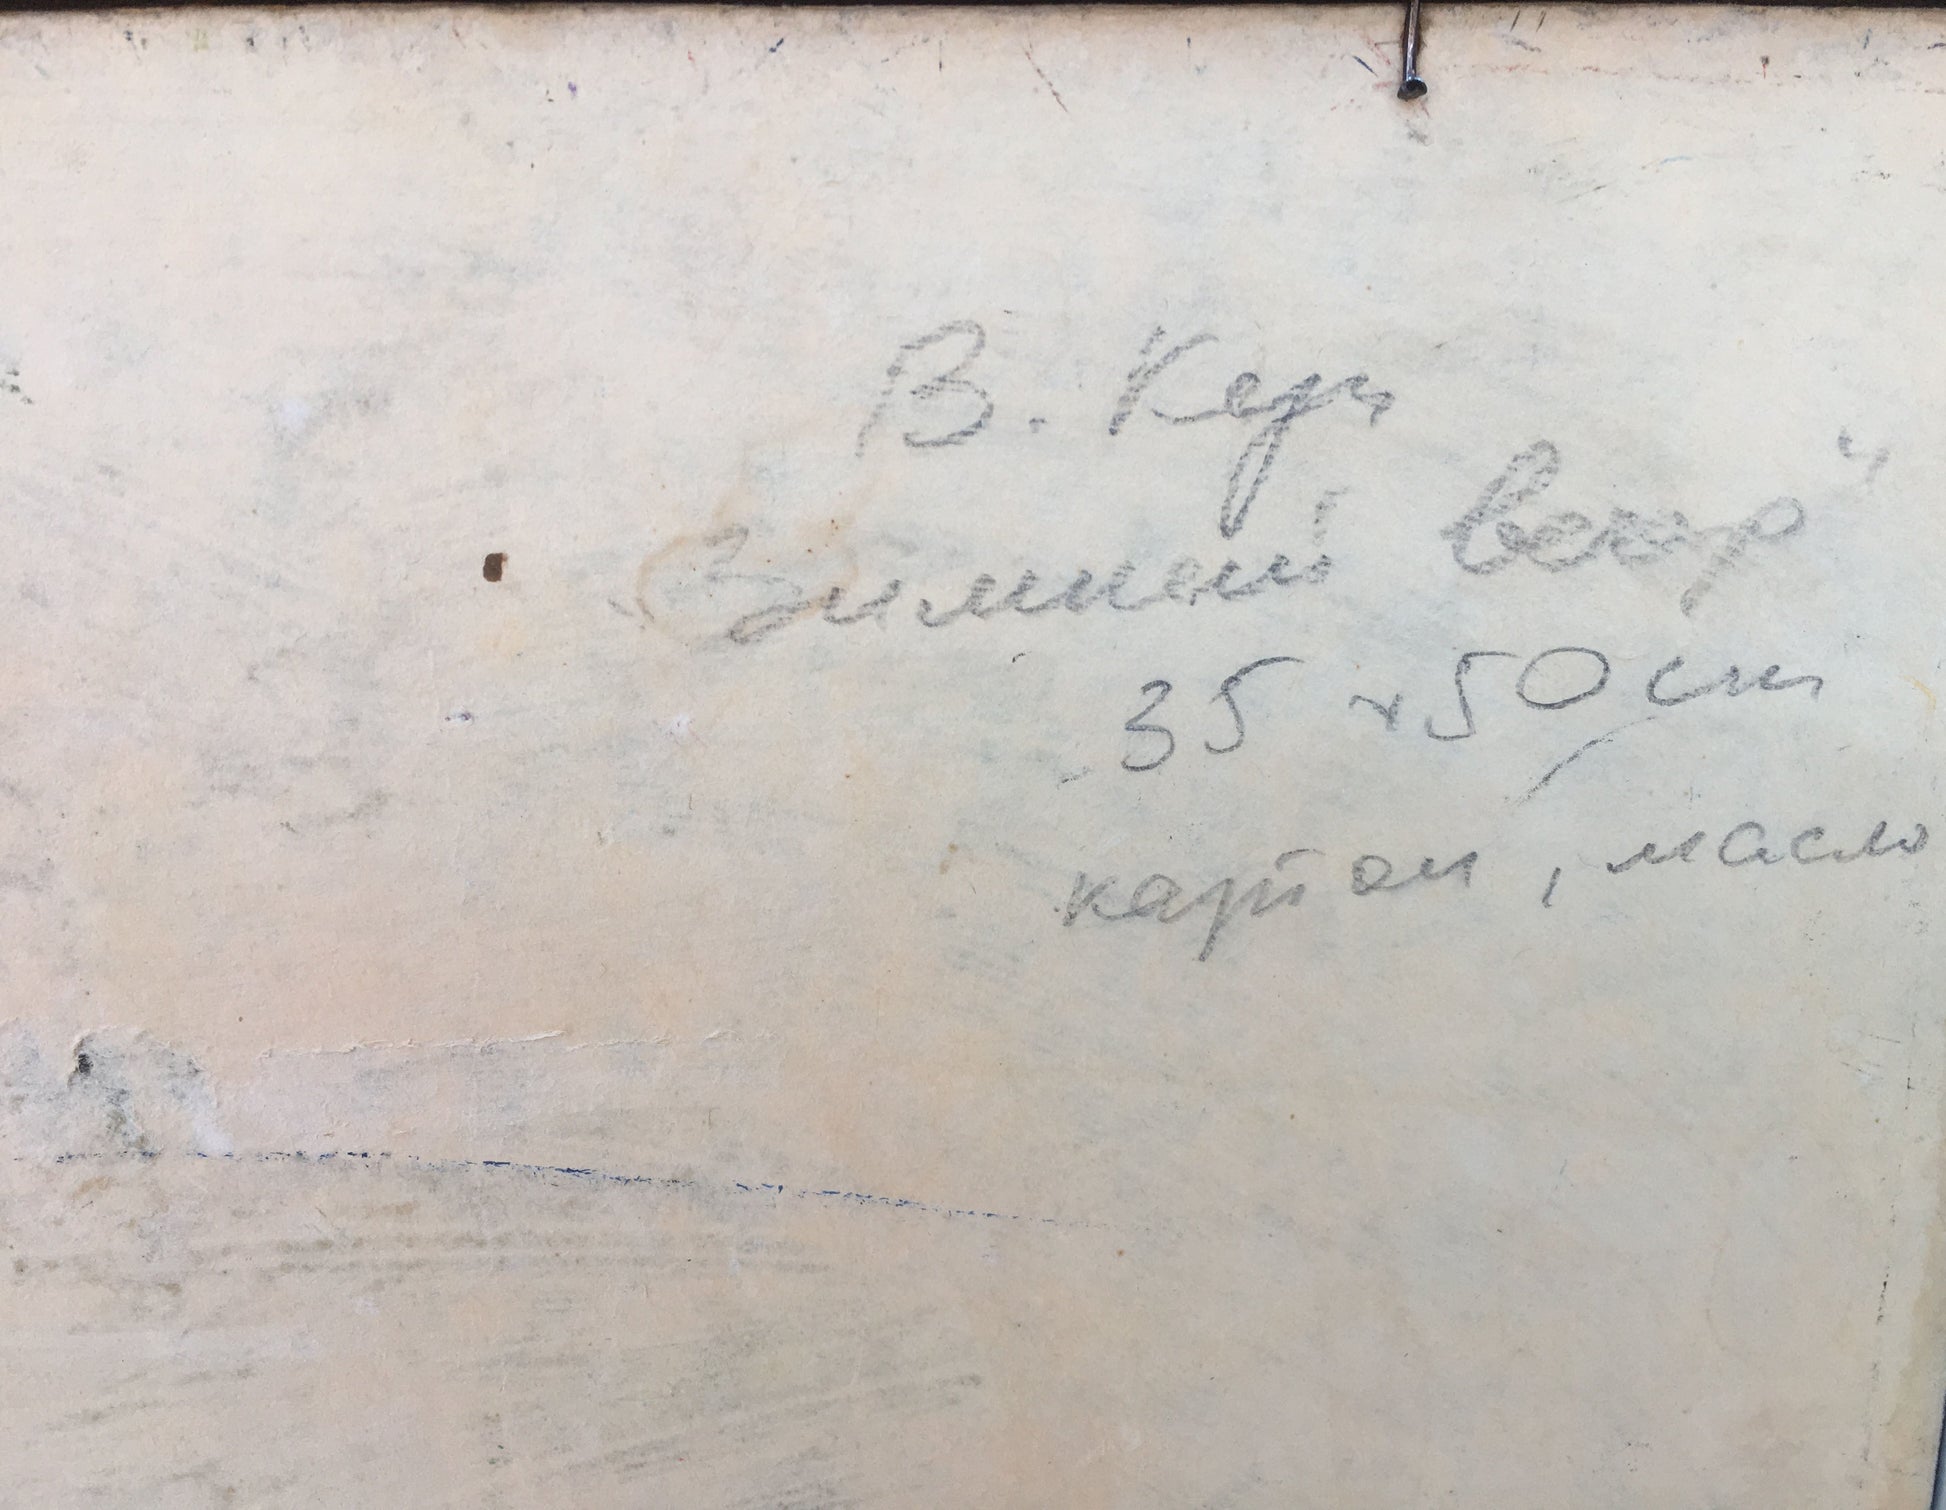 В. Керн
„Зимний вечер“
35 х 50 см
картон, масло